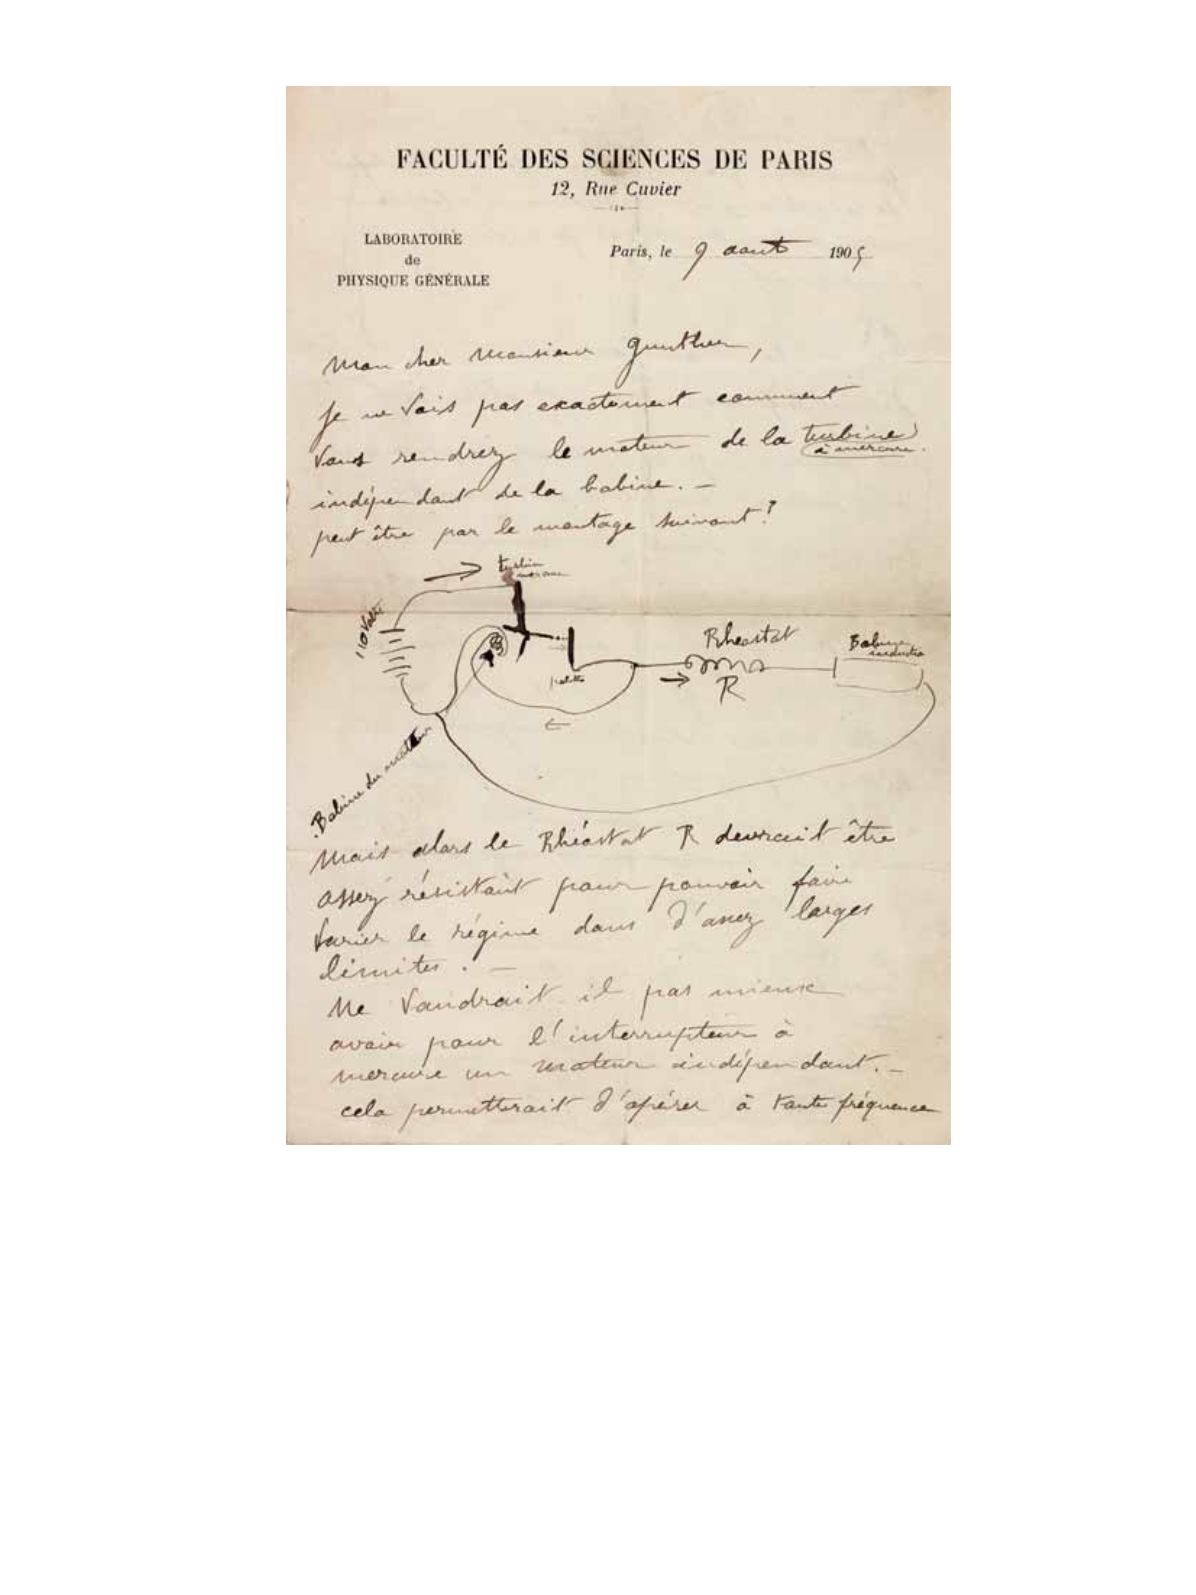 FACULTÉ DES SCIENCES DE PARIS
12, Rue Cuvier
LABORATOIRE
de
PHYSIQUE GÉNÉRALE
Paris, le 9 aout 1905
Mon cher Monsieur Gunther,
Je ne vois pas exactement comment
vous rendrez le moteur de la turbine
à mercure.
indépendant de la bobine. —
peut être par le montage suivant?
turbine
mercure
110 Volts
palette
Rhéostat
R
Bobine
induction
Bobine du moteur
Mais alors le Rhéostat R devrait être
assez résistant pour pouvoir faire
varier le régime dans d'assez larges
limites. —
Ne vaudrait il pas mieux
avoir pour l'interrupteur à
mercure un moteur indépendant. —
cela permettrait d'opérer à haute fréquence